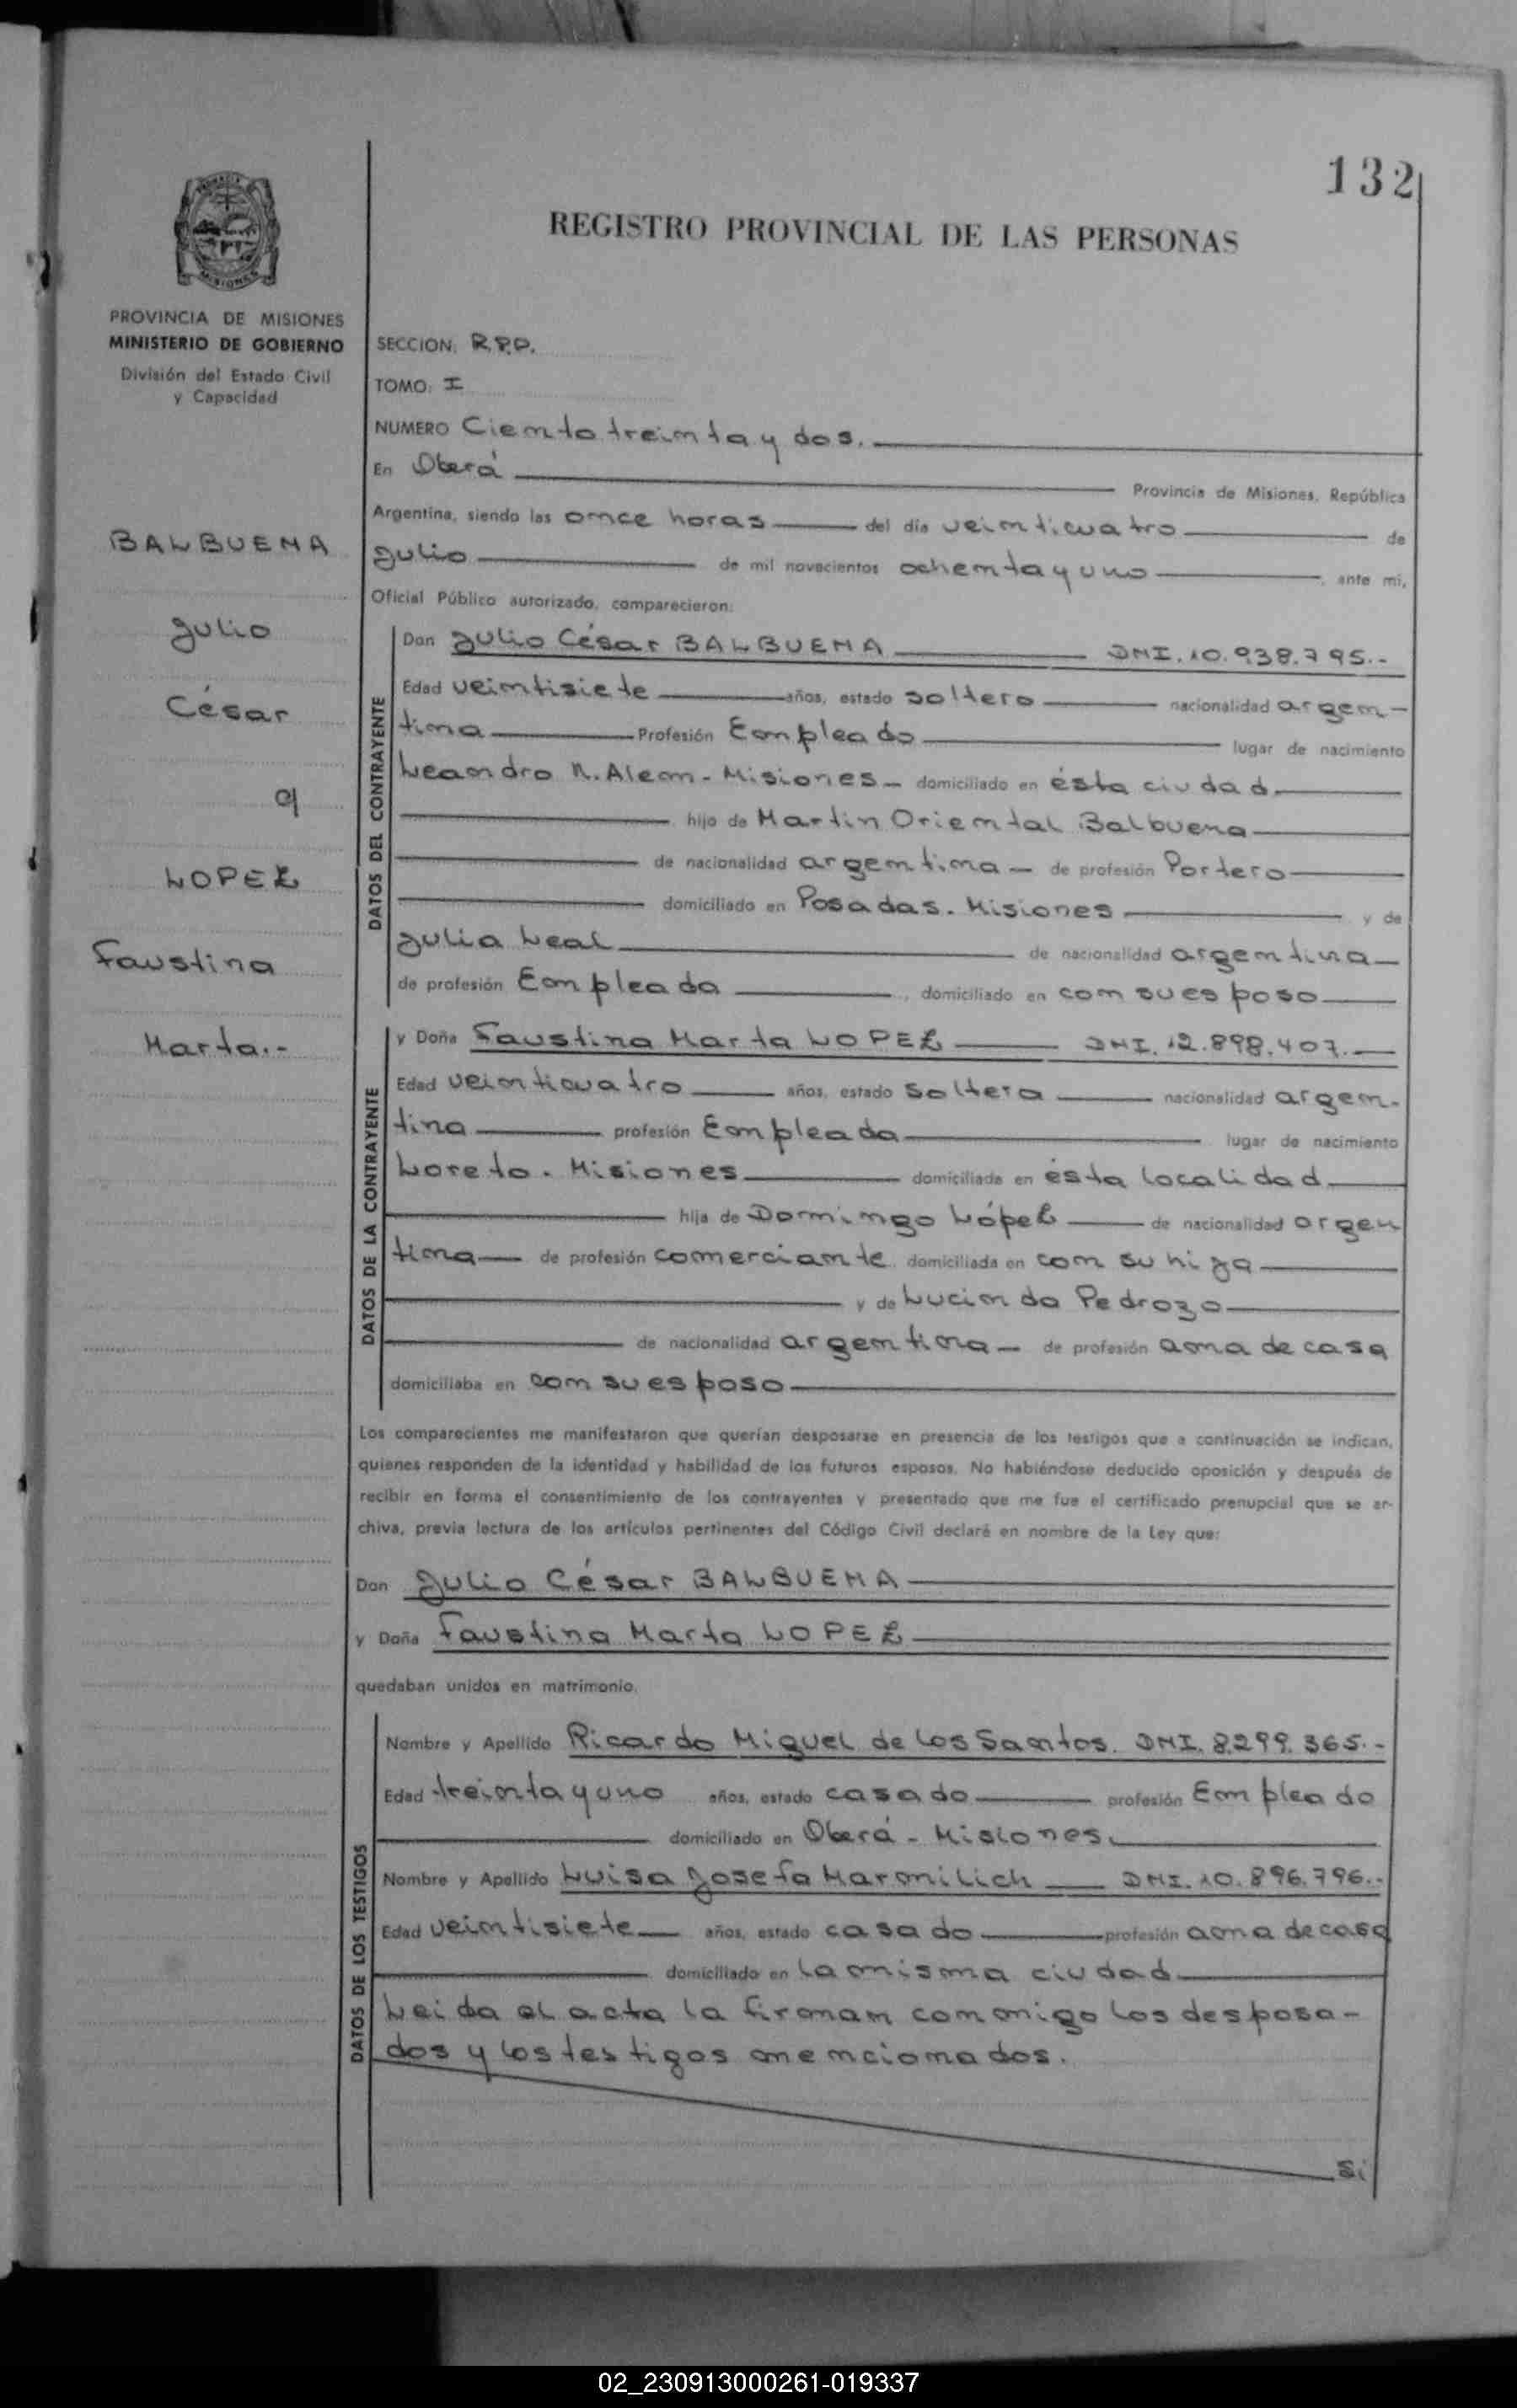 132
REGISTRO PROVINCIAL DE LAS PERSONAS
PROVINCIA DE MISIONES
MINISTERIO DE GOBIERNO
División del Estado Civil
y Capacidad
BALBUENA
Julio
César
c/
LOPEZ
Faustina
Marta.-
SECCION: R.P.P.
TOMO: I
NUMERO Ciento treinta y dos.
En Oberá Provincia de Misiones, República
Argentina, siendo las once horas del día veinticuatro de
Julio de mil novecientos ochenta y uno, ante mi,
Oficial Público autorizado, comparecieron:
DATOS DEL CONTRAYENTE
Don Julio César BALBUENA DNI. 10.938.795.-
Edad veintisiete años, estado soltero nacionalidad argen-
tina Profesión Empleado lugar de nacimiento
Leandro N. Alem - Misiones - domiciliado en ésta ciudad.
hijo de Martin Oriental Balbuena
de nacionalidad argentina - de profesión Portero
domiciliado en Posadas. Misiones y de
Julia Leal de nacionalidad argentina
de profesión Empleada, domiciliado en con su esposo
DATOS DE LA CONTRAYENTE
y Doña Faustina Marta LOPEZ DNI. 12.898.407.
Edad veinticuatro años, estado soltera nacionalidad argen-
tina profesión Empleada lugar de nacimiento
Loreto. Misiones domiciliada en ésta localidad
hija de Domingo López de nacionalidad argen
tina de profesión comerciante domiciliada en con su hija
y de Lucinda Pedrozo
de nacionalidad argentina - de profesión ama de casa
domiciliaba en con su esposo
Los comparecientes me manifestaron que querían desposarse en presencia de los testigos que a continuación se indican,
quienes responden de la identidad y habilidad de los futuros esposos. No habiéndose deducido oposición y después de
recibir en forma el consentimiento de los contrayentes y presentado que me fue el certificado prenupcial que se ar-
chiva, previa lectura de los artículos pertinentes del Código Civil declaré en nombre de la Ley que:
Don Julio César BALBUENA
y Doña Faustina Marta LOPEZ
quedaban unidos en matrimonio.
DATOS DE LOS TESTIGOS
Nombre y Apellido Ricardo Miguel de los Santos. DNI. 8.299.365.-
Edad treinta y uno años, estado casado profesión Empleado
domiciliado en Oberá - Misiones.
Nombre y Apellido Luisa Josefa Marmilich DNI. 10.896.796.-
Edad veintisiete años, estado casado profesión ama de casa
domiciliado en la misma ciudad
Leida el acta la firman conmigo los desposa-
dos y los testigos mencionados.
Si
02_230913000261-019337